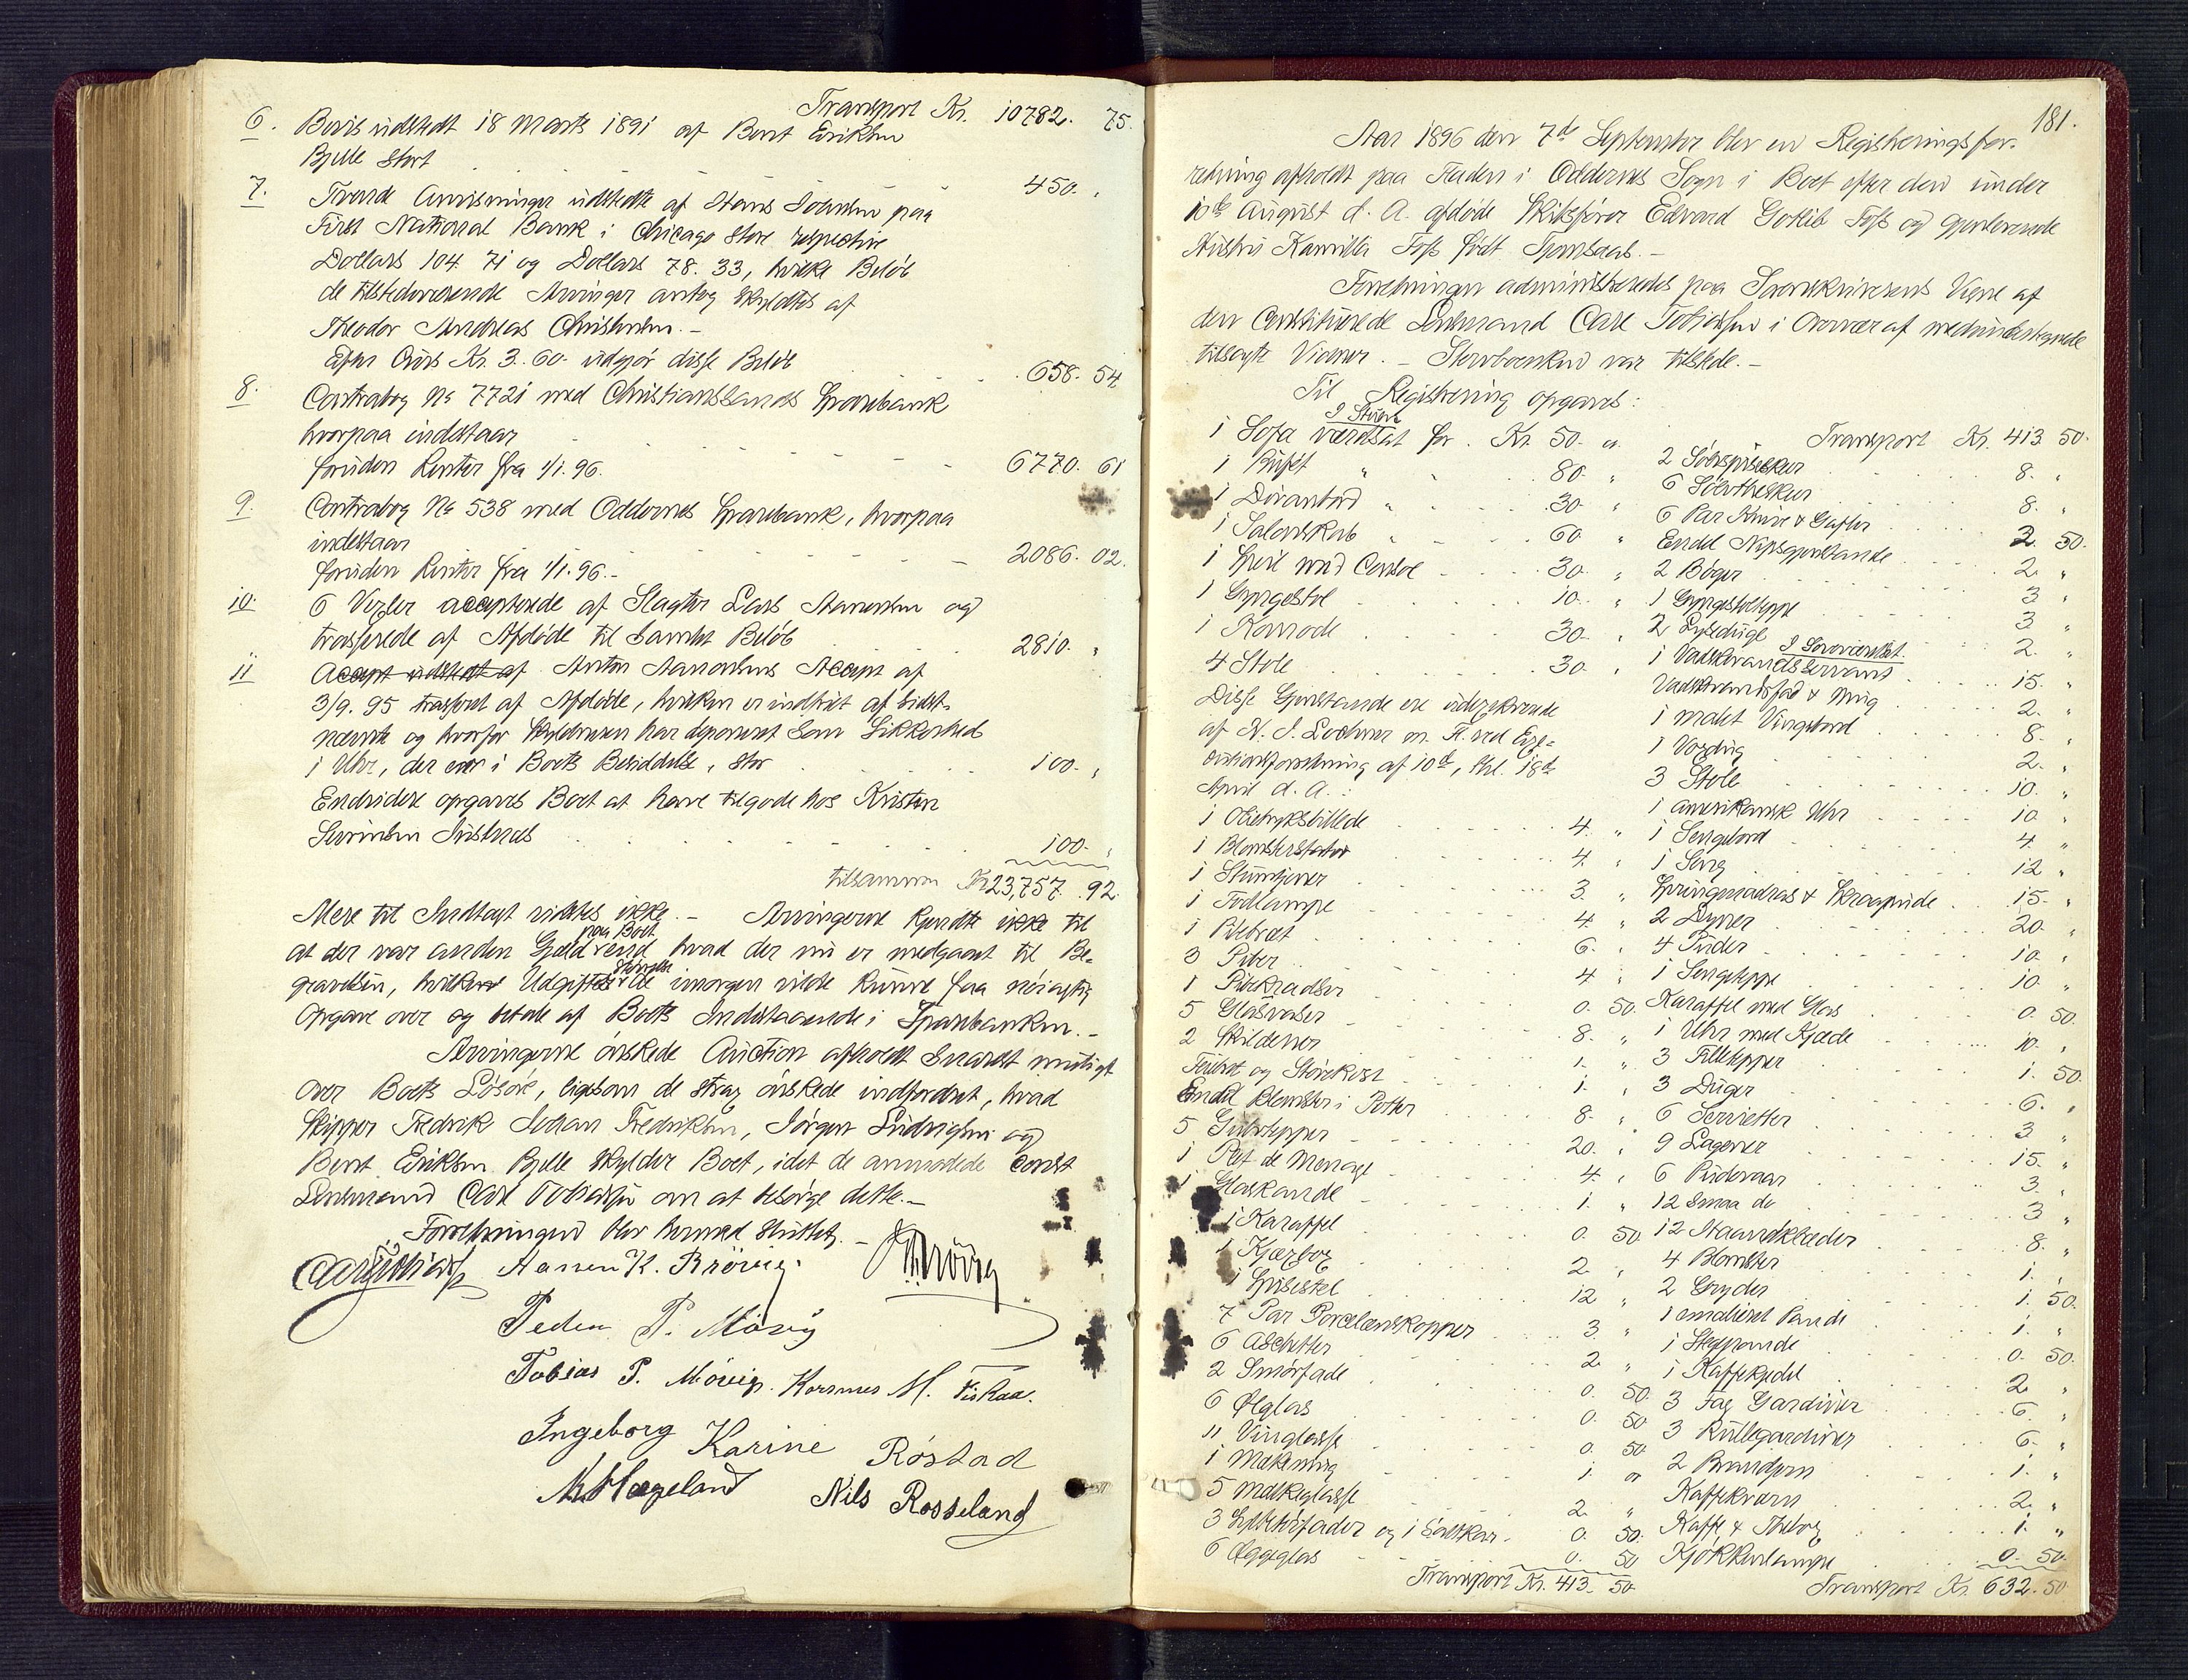 Transport Kr. 10782. 75.
6. Bevis udstedt 18 Marts 1891 af Bent Eriksen
Bjelle stort 450. "
7. Tvende Anvisninger udstedte af Hans Johnsen paa
First National Bank i Chicago store respective
Dollars 104. 71 og Dollars 78. 33, hvilke Beløb
de tilstedeværende Arvinger antog skyldtes af
Theodor Andreas Christensen. -
Efter Cours Kr. 3.60. udgjør disse Beløb 658. 54
8. Contrabog No 7721 med Christianssands Sparebank
hvorpaa indestaar 6770. 61
foruden Renter fra 1/1.96.
9. Contrabog No 538 med Oddernes Sparebank, hvorpaa
indestaar 2086. 02.
foruden Renter fra 1/1.96. -
10. 6 Vexler accepterede af Slagter Lars Aanensen og
trasserede af Afdøde til samlet Beløb 2810. "
11 Accept udstedt af Anton Aanensens Accept af
3/9. 95 trasseret af Afdøde, hvilken er indfriet af sidst-
nævnte og hvorfor Skyldneren har deponeret som Sikkerhed
1 Uhr, der er i Boets Besiddelse, stor 100. "
Endvidere opgaves Boet at have tilgode hos Kristen
Sørensen 100. "
tilsammen Kr. 23,757. 92.
Mere til Indtægt vidstes ikke. - Arvingerne kjendte ikke til
at der var anden Gjæld paa Boet end hvad der nu er medgaaet til Be-
gravelsen, hvilken Udgifts Størrelse de imorgen vilde kunne faa nøiagtig
Opgave over og betale af Boets Indestaaende i Sparebanken. -
Arvingerne ønskede Auction afholdt snarest muligt
over Boets Løsøre, ligesom de strax ønskede indfordret, hvad
Skipper Fredrik Johan Fredriksen, Jørgen Ludvigsen og
Bent Eriksen Bjelle skylder Boet, idet de anmodede const
Lensmand Carl Tobiassen om at besørge dette. -
Forretningen blev hermed sluttet. -
Carl Tobiassen Aanen K. Brøvig.
Peder P. Møvig
Tobias P. Møvig. Rasmus M. Fiskaa.
Ingeborg Karine Røstad
Hægeland Nils Rosseland
181.
Aar 1896 den 7de September blev en Registreringsfor-
retning afholdt paa Fladen i Oddernes Sogn i Boet efter den under
10de August d. A. afdøde Skibsfører Edvard Gotlib Foss og gjenlevende
Hustru Kamilla Foss født
Forretningen administreredes paa Sorenskriverens Vegne af
den constituerede Lensmand Carl Tobiassen i Overvær af medundertegnede
tilsagte Vidner. - Stervboenken var tilstede. -
Til Registrering opgaves:
1 Sofa 2 Stole værdsat for Kr. 50. "
1 Buffet " 80. "
1 Divanbord " 30 "
1 Salonskab " 60 "
1 Speil med Consol 30. "
1 Gyngestol 10. "
1 Komode 30. "
4 Stole 30. "
Disse Gjenstande ere udpegede
af N. J. Lochner m. Fl. ved Exe-
cutionsforretning af 10de, thl. 18de
April d. A.:
1 Olietryksbillede 4. "
1 Blomsterstativ 4. "
1 Stumtjener 3. "
1 Fodlampe 4. "
1 Pibebræt 6. "
3 Piber 4 "
1 Pibekradser 0. 50.
5 Glasvaser 8. "
2 Skilderier 1. "
Feiebræt og Støvekost 1. "
Endel Blomster i Potter 8. "
5 Gulvtepper 20. "
1 Plat de Menage 4. "
1 Glaskande 1. "
1 Karaffel 0. 50.
1 Kjøgebog 2. "
1 Spisestel 12 "
7 Par Porcelænskopper 3. "
6 Aschetter 2. "
2 Smørfade 0. 50.
6 Ølglas 0. 50
11 Vinglasse 0. 50
1 Melkemug 1. "
5 Melkeglasse 2. "
3 Syltetøifader og 1 Saltkar. 0. 50.
6 Æggeglas 0. 50
Transport Kr. 413. 50.
Transport Kr. 413 50.
2 Sølvspiseskeer 8. "
6 Sølvtheskeer 8. "
6 Par Knive & Gafler 2. 50.
Endel Nipsgjenstande 2. "
2 Bøger 3 "
1 Gyngestolteppe 3 "
2 Lysedüge 2. "
1 Vadskevandsservant 2 Soveværelset 15. "
Vadskevandsfad & Mug 2. "
1 malet Vingebord 8. "
1 Voxdug 2. "
3 Stole 10. "
1 amerikansk Uhr 10. "
1 Sengebord 4. "
1 Seng 12 "
Springmadras & Skraapude 15. "
2 Dyner 20. "
4 Puder 10. "
1 Sengeteppe 10. "
Karaffel med Glas 0. 50.
1 Uhr med Kjæde 10. "
3 Filletepper 1. 50.
3 Duger 6. "
6 Servietter 3 "
9 Lagener 15. "
6 Pudevaar 3. "
12 Smaa do 3 "
12 Haandklæder 8. "
4 Blomster 1. "
2 Gryder 1. 50.
1 emalieret Pande 1. "
1 Stegpande 0. 50.
1 Kaffekjedel 2. "
3 Fag Gardiner 6. "
3 Rullegardiner 6. "
2 Brandjern 1. "
Kaffekværn 2. "
Kaffe & Thebox 1. "
Kjøkkenlampe 0. 50.
Transport Kr. 632. 50